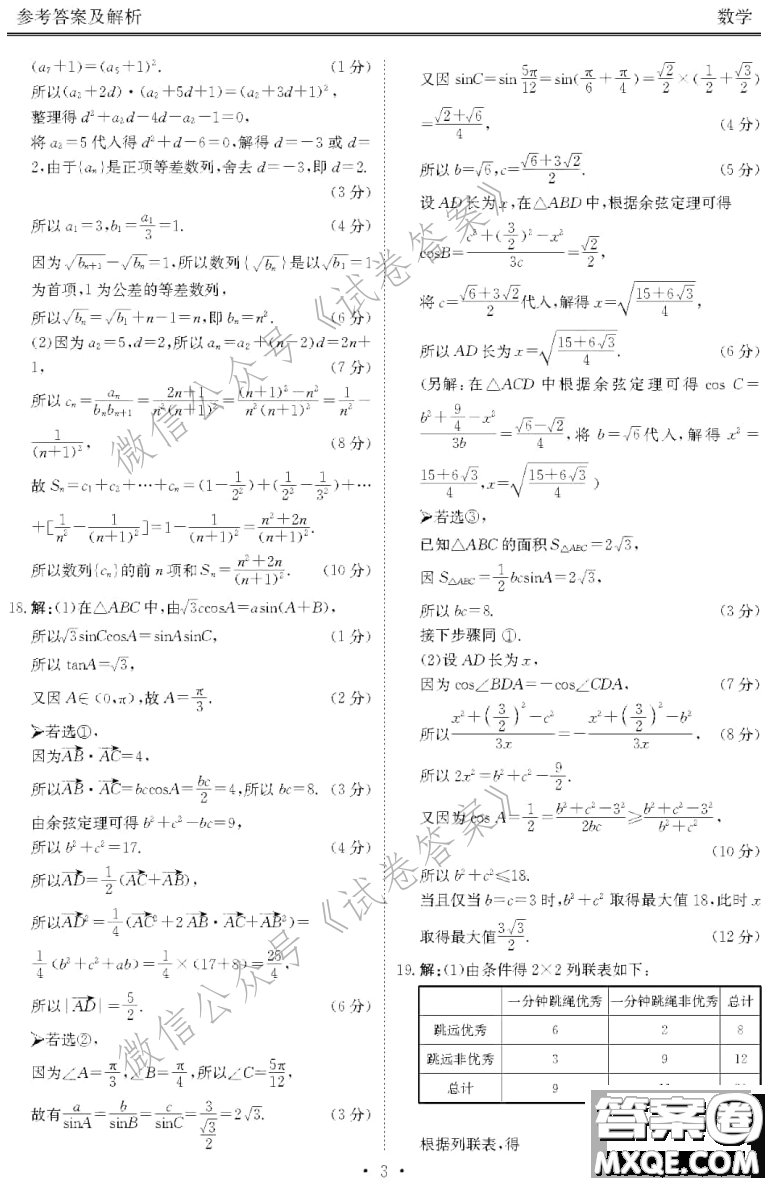 参考答案及解析
数学
(a₇+1)=(a₅+1)².  (1分)
所以(a₂+2d)·(a₂+5d+1)=(a₂+3d+1)²,
整理得 d²+a₂d-4d-a₂-1=0,
将 a₂=5 代入得 d²+d-6=0,解得 d=-3 或 d=
2,由于{aₙ}是正项等差数列,舍去 d=-3,即 d=2.
(3分)
所以 a₁=3,b₁=a₁/3=1.  (4分)
因为√bₙ₊₁-√bₙ=1,所以数列{√bₙ}是以√b₁=1
为首项,1 为公差的等差数列,
所以√bₙ=√b₁+n-1=n,即 bₙ=n².  (6分)
(2)因为 a₂=5,d=2,所以 aₙ=a₂+(n-2)d=2n+
1,  (7分)
所以 cₙ=aₙ/(bₙbₙ₊₁)=(2n+1)/(n²(n+1)²)=((n+1)²-n²)/(n²(n+1)²)=1/n²-
1/(n+1)²,  (8分)
故 Sₙ=c₁+c₂+…+cₙ=(1-1/2²)+(1/2²-1/3²)+…
+[1/n²-1/(n+1)²]=1-1/(n+1)²=(n²+2n)/(n+1)².
所以数列{cₙ}的前 n 项和 Sₙ=(n²+2n)/(n+1)².  (10分)
18.解:(1)在△ABC 中,由√3ccosA=asin(A+B),
所以√3sinCcosA=sinAsinC,  (1分)
所以 tanA=√3,
又因 A∈(0,π),故 A=π/3.  (2分)
➢若选①,
因为AB·AC=4,
所以AB·AC=bccosA=bc/2=4,所以 bc=8.  (3分)
由余弦定理可得 b²+c²-bc=9,
所以 b²+c²=17.  (4分)
所以AD=1/2(AC+AB),
所以AD²=1/4(AC²+2AB·AC+AB²)=
1/4(b²+c²+ab)=1/4×(17+8)=25/4,
所以|AD|=5/2.  (6分)
➢若选②,
因为∠A=π/3,∠B=π/4,所以∠C=5π/12,
故有a/sinA=b/sinB=c/sinC=3/(√3/2)=2√3.  (3分)
又因 sinC=sin5π/12=sin(π/6+π/4)=√2/2×(1/2+√3/2)
=(√2+√6)/4,  (4分)
所以 b=√6,c=(√6+3√2)/2.  (5分)
设 AD 长为 x,在△ABD 中,根据余弦定理可得
cosB=(c²+(3/2)²-x²)/3c=√2/2,
将 c=(√6+3√2)/2代入,解得 x=√((15+6√3)/4),
所以 AD 长为 x=√((15+6√3)/4).  (6分)
(另解:在△ACD 中根据余弦定理可得 cos C=
(b²+9/4-x²)/3b=(√6-√2)/4,将 b=√6代入,解得 x²=
(15+6√3)/4,x=√((15+6√3)/4))
➢若选③,
已知△ABC 的面积 S△ABC=2√3,
因 S△ABC=1/2bcsinA=2√3,
所以 bc=8.  (3分)
接下步骤同 ①.
(2)设 AD 长为 x,
因为 cos∠BDA=-cos∠CDA,  (7分)
所以(x²+(3/2)²-c²)/3x=-(x²+(3/2)²-b²)/3x,  (8分)
所以 2x²=b²+c²-9/2.
又因为 cos A=1/2=(b²+c²-3²)/2bc≥(b²+c²-3²)/(b²+c²),
(10分)
所以 b²+c²≤18.
当且仅当 b=c=3 时,b²+c² 取得最大值 18,此时 x
取得最大值3√3/2.  (12分)
19.解:(1)由条件得 2×2 列联表如下:
一分钟跳绳优秀 一分钟跳绳非优秀 总计
跳远优秀 6 2 8
跳远非优秀 3 9 12
总计 9
根据列联表,得
• 3 •
微信公众号《试卷答案》
微信公众号《试卷答案》
答案圈
MXQE.COM